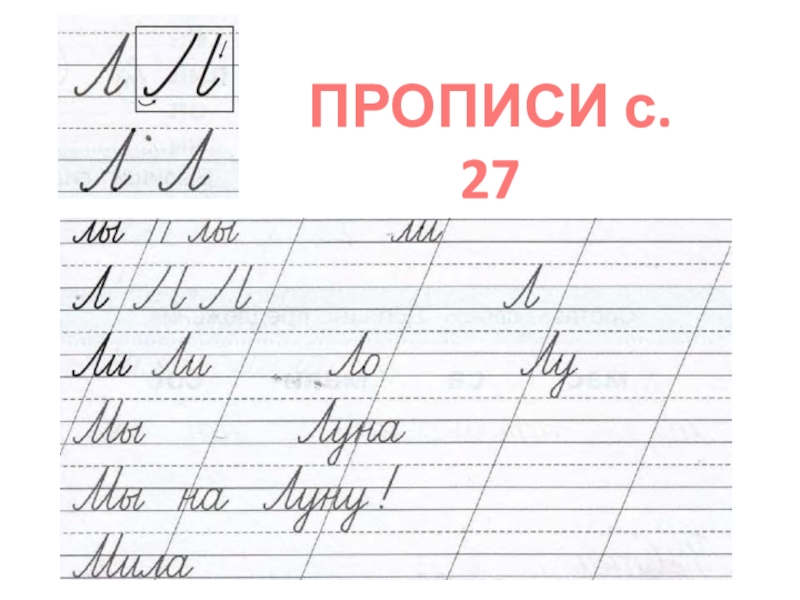 Л Л
Л Л
ПРОПИСИ с.
27
лы лы ли
Л Л Л Л
Ли Ли Ло Лу
Мы Луна
Мы на Луну!
Мила